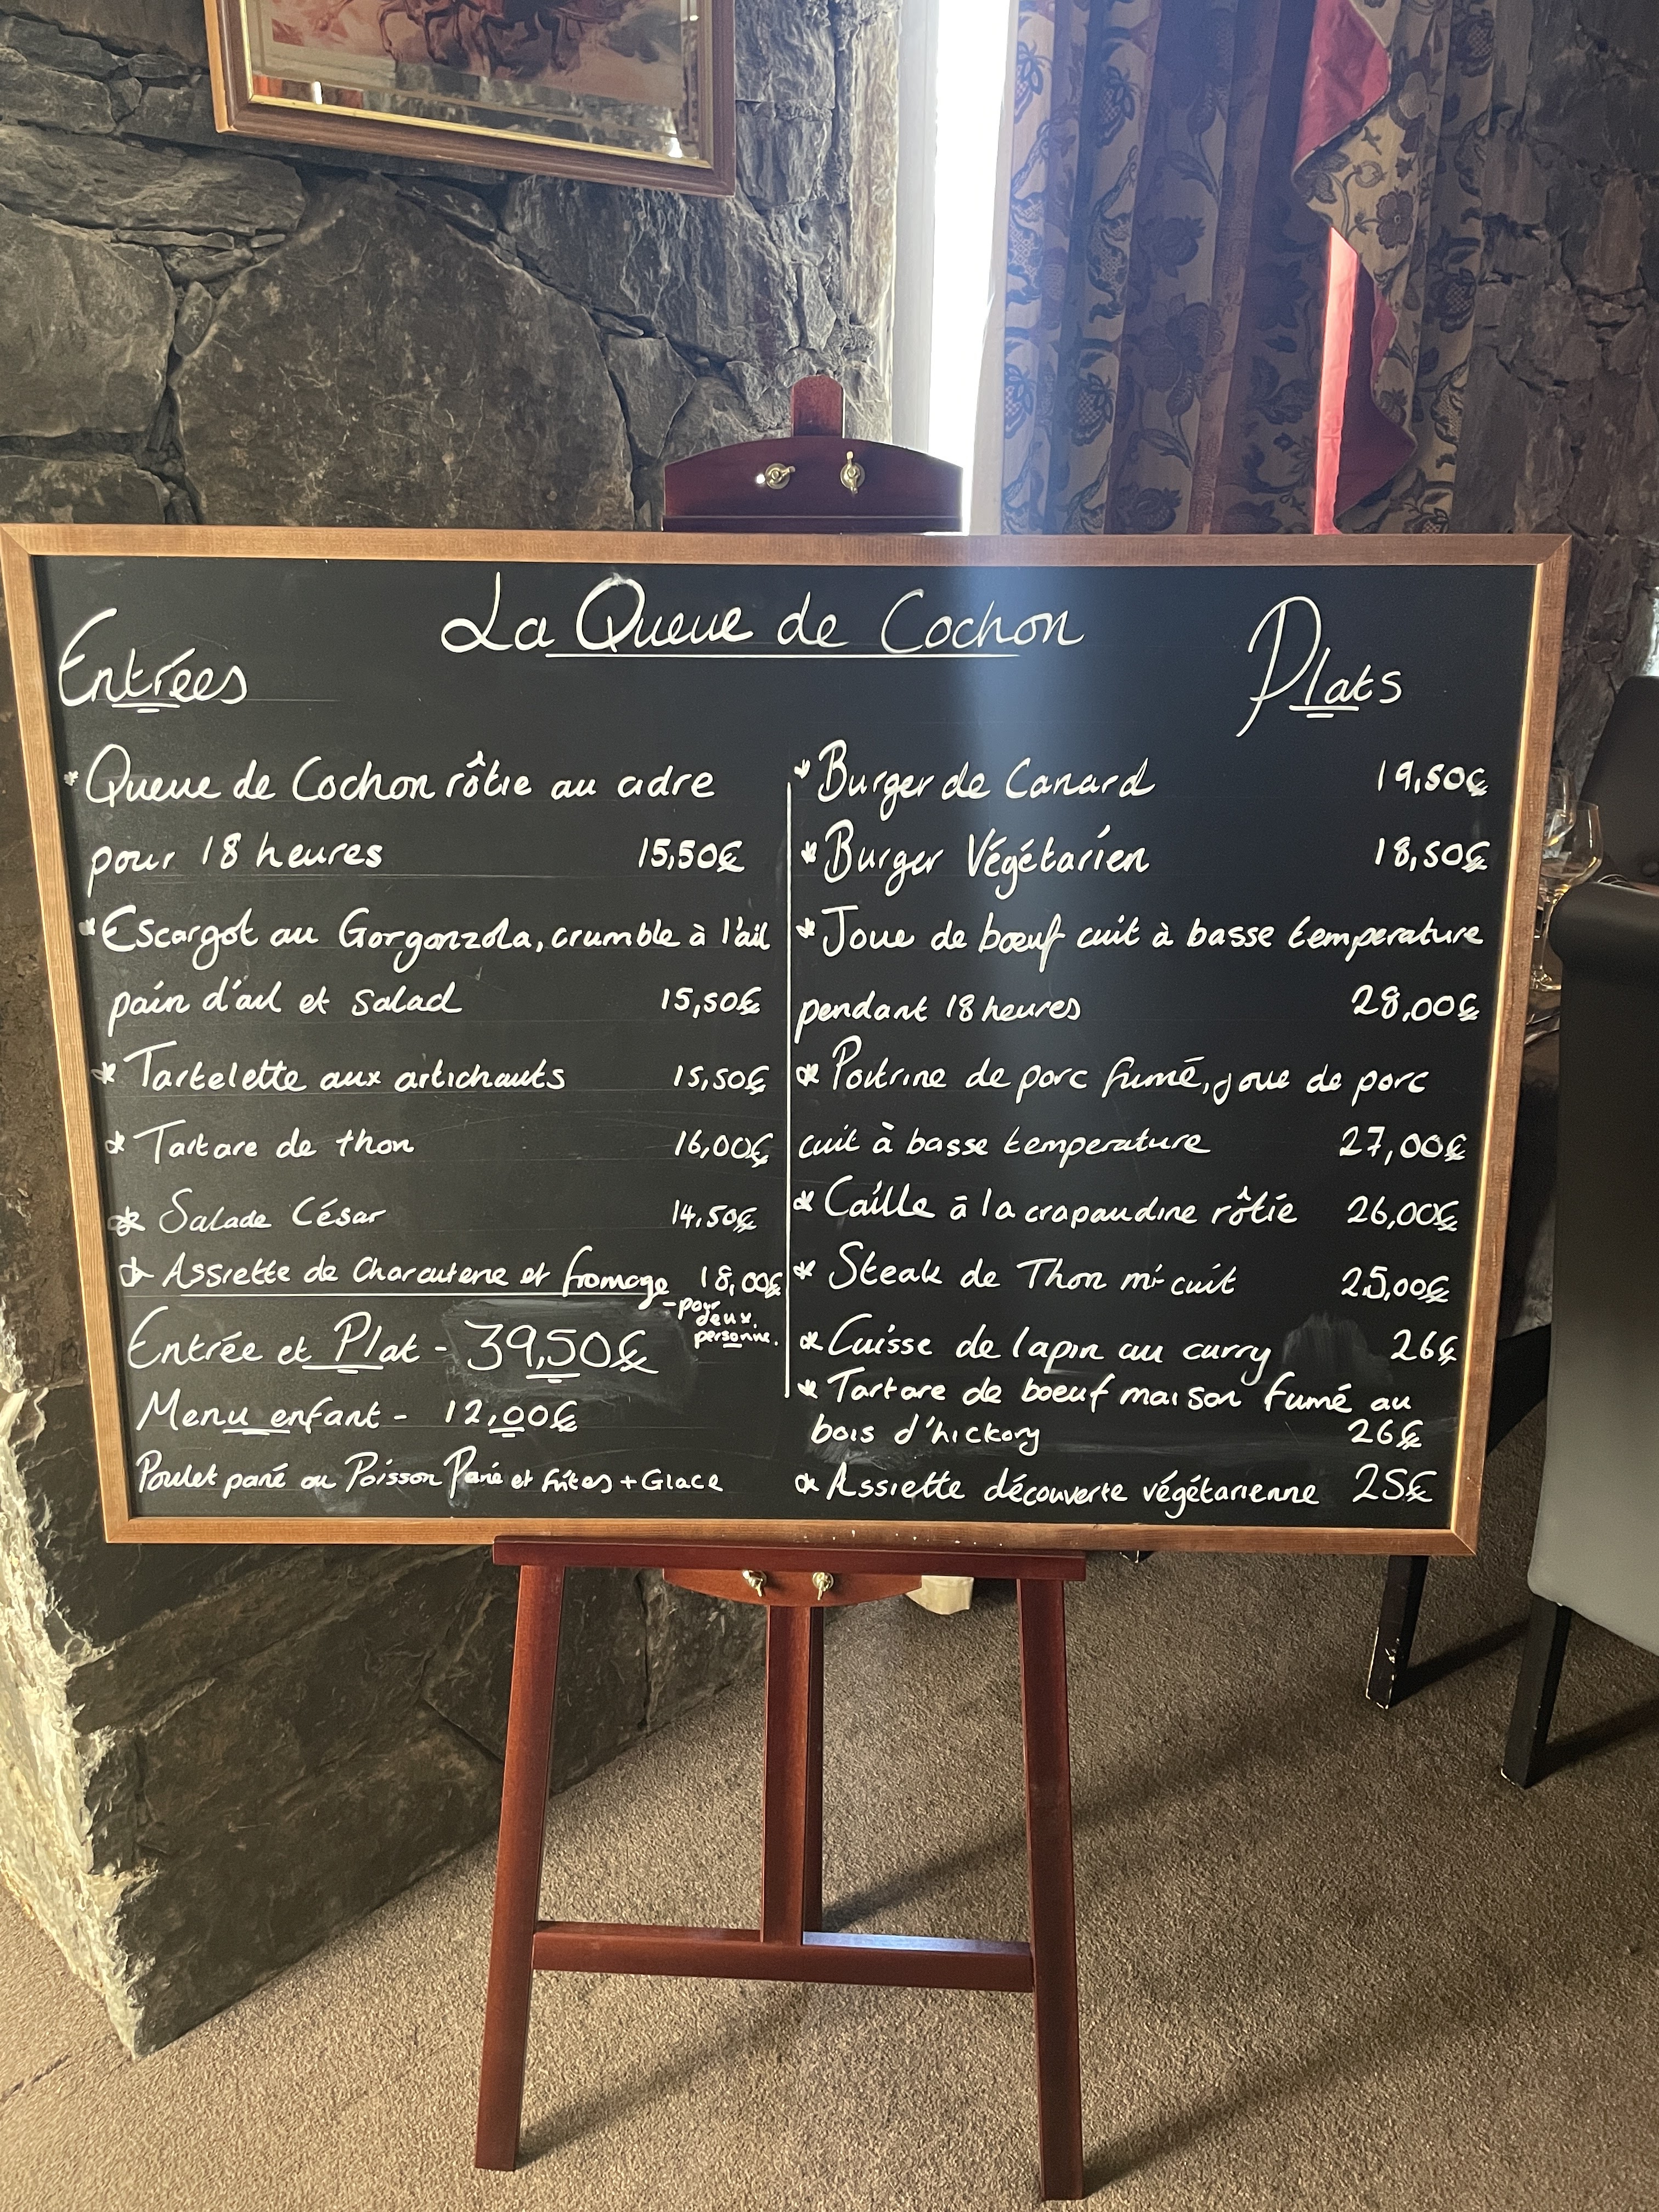 La Queue de Cochon
Entrées
* Queue de Cochon rôtie au cidre
pour 18 heures 15,50€
* Escargot au Gorgonzola, crumble à l'ail
pain d'ail et Salad 15,50€
* Tartelette aux artichauts 15,50€
* Tartare de thon 16,00€
* Salade César 14,50€
* Assiette de Charcuterie et fromage 18,00€
- pour
deux
personne.
Entrée et Plat - 39,50€
Menu enfant - 12,00€
Poulet pané ou Poisson Pané et frites + Glace
Plats
* Burger de Canard 19,50€
* Burger Végétarien 18,50€
* Joue de bœuf cuit à basse temperature
pendant 18 heures 28,00€
* Poitrine de porc fumé, joue de porc
cuit à basse temperature 27,00€
* Caille à la crapaudine rôtie 26,00€
* Steak de Thon mi-cuit 25,00€
* Cuisse de lapin au curry 26€
* Tartare de boeuf maison fumé au
bois d'hickory 26€
* Assiette découverte végétarienne 25€